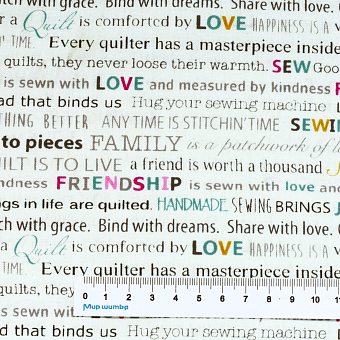 tch with grace. Bind with dreams. Share with love. C
a Quilt is comforted by LOVE HAPPINESS IS A
' TIME. Every quilter has a masterpiece inside
quilts, they never loose their warmth. SEW Goo
is sewn with LOVE and measured by kindness F
ad that binds us Hug your sewing machine
THING BETTER ANY TIME IS STITCHIN' TIME SEWIN
to pieces FAMILY is a patchwork of l
ILT IS TO LIVE a friend is worth a thousand
ndness FRIENDSHIP is sewn with love and
ngs in life are quilted. HANDMADE SEWING BRINGS J
tch with grace. Bind with dreams. Share with love.
a Quilt is comforted by LOVE HAPPINESS IS A
TIME. Every quilter has a masterpiece inside
quilts, they
0 1 2 3 4 5 6 7 8 9 10 11
Мир штампа
is sewn
ad that binds us Hug your sewing machine